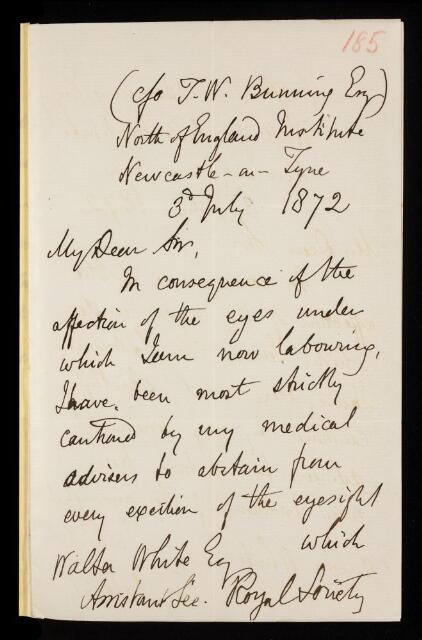 185
(c/o T. W. Bunning Esq)
North of England Institute
Newcastle-on-Tyne
3d July 1872
My Dear Sir,
In consequence of the
affection of the eyes under
which I am now labouring,
I have been most strictly
cautioned by my medical
advisers to abstain from
every exertion of the eyesight
which
Walter White Esq
Assistant Sec. Royal Society